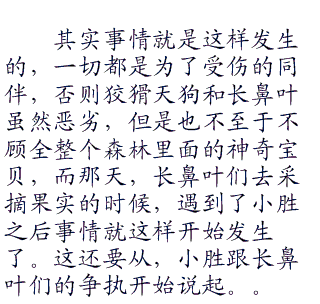 其实事情就是这样发生
的，一切都是为了受伤的同
伴，否则狡猾天狗和长鼻叶
虽然恶劣，但是也不至于不
顾全整个森林里面的神奇宝
贝，而那天，长鼻叶们去采
摘果实的时候，遇到了小胜
之后事情就这样开始发生
了。这还要从，小胜跟长鼻
叶们的争执开始说起。。